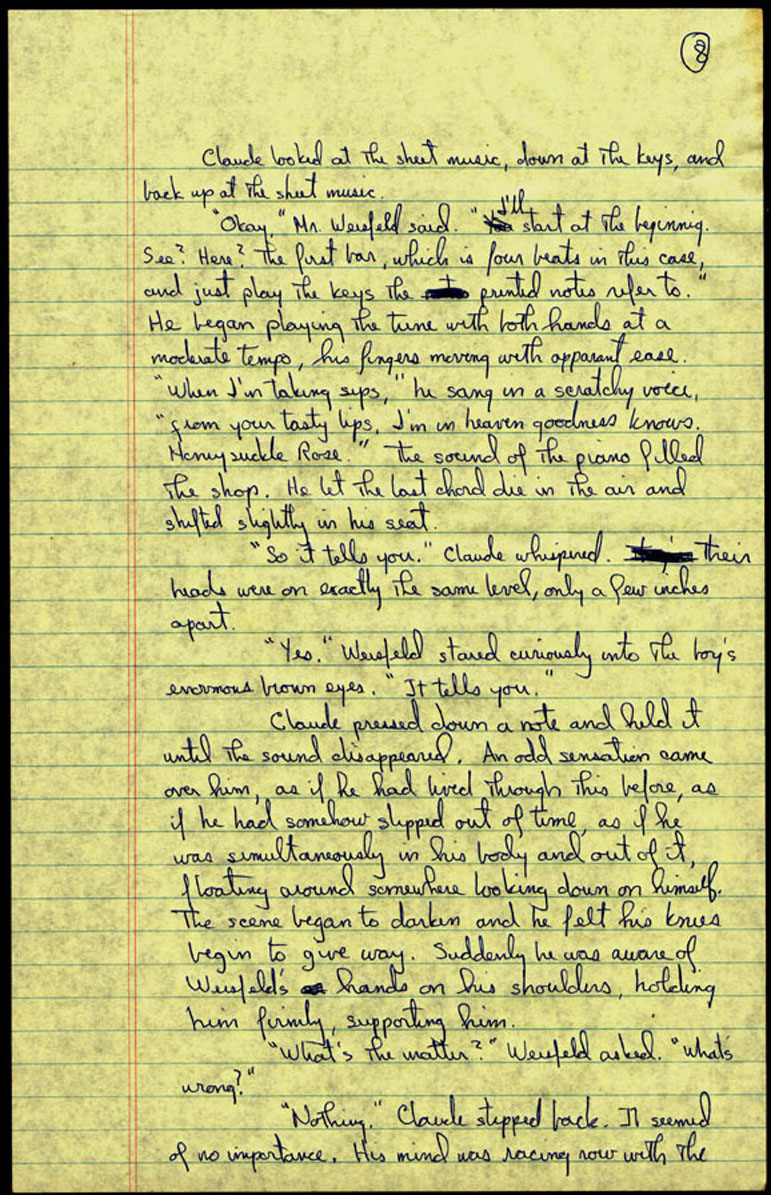 8
Claude looked at the sheet music, down at the keys, and
back up at the sheet music.
"Okay," Mr. Weisfeld said. "I'll start at the beginnig.
See? Here? The first bar, which is four beats in this case,
and just play the keys the printed notes refer to."
He began playing the tune with both hands at a
moderate tempo, his fingers moving with apparant ease.
"When I'm taking sips," he sang in a scratchy voice,
"from your tasty lips, I'm in heaven goodness knows.
Honeysuckle Rose." The sound of the piano filled
the shop. He let the last chord die in the air and
shifted slightly in his seat.
"So it tells you." Claude whispered. Their
heads were on exactly the same level, only a few inches
apart.
"Yes." Weisfeld stared curiously into the boy's
enormous brown eyes. "It tells you."
Claude pressed down a note and held it
until the sound disappeared. An odd sensation came
over him, as if he had lived through this before, as
if he had somehow slipped out of time, as if he
was simultaneously in his body and out of it,
floating around somewhere looking down on himself.
The scene began to darken and he felt his knees
begin to give way. Suddenly he was aware of
Weisfeld's hands on his shoulders, holding
him firmly, supporting him.
"What's the matter?" Weisfeld asked. "What's
wrong?"
"Nothing." Claude stepped back. It seemed
of no importance. His mind was racing now with the